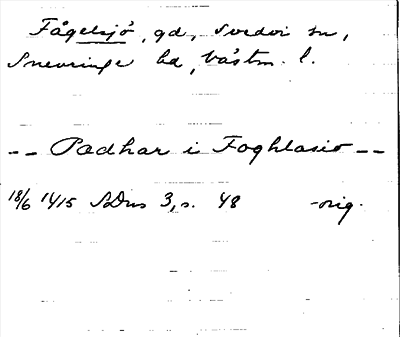 Fågelsjö, gd, Svedvi sn,
Snevringe hd, Västm. l.
-- Padhar i Foghlasio --
18/6 1415 SDns 3, s. 48 - orig.